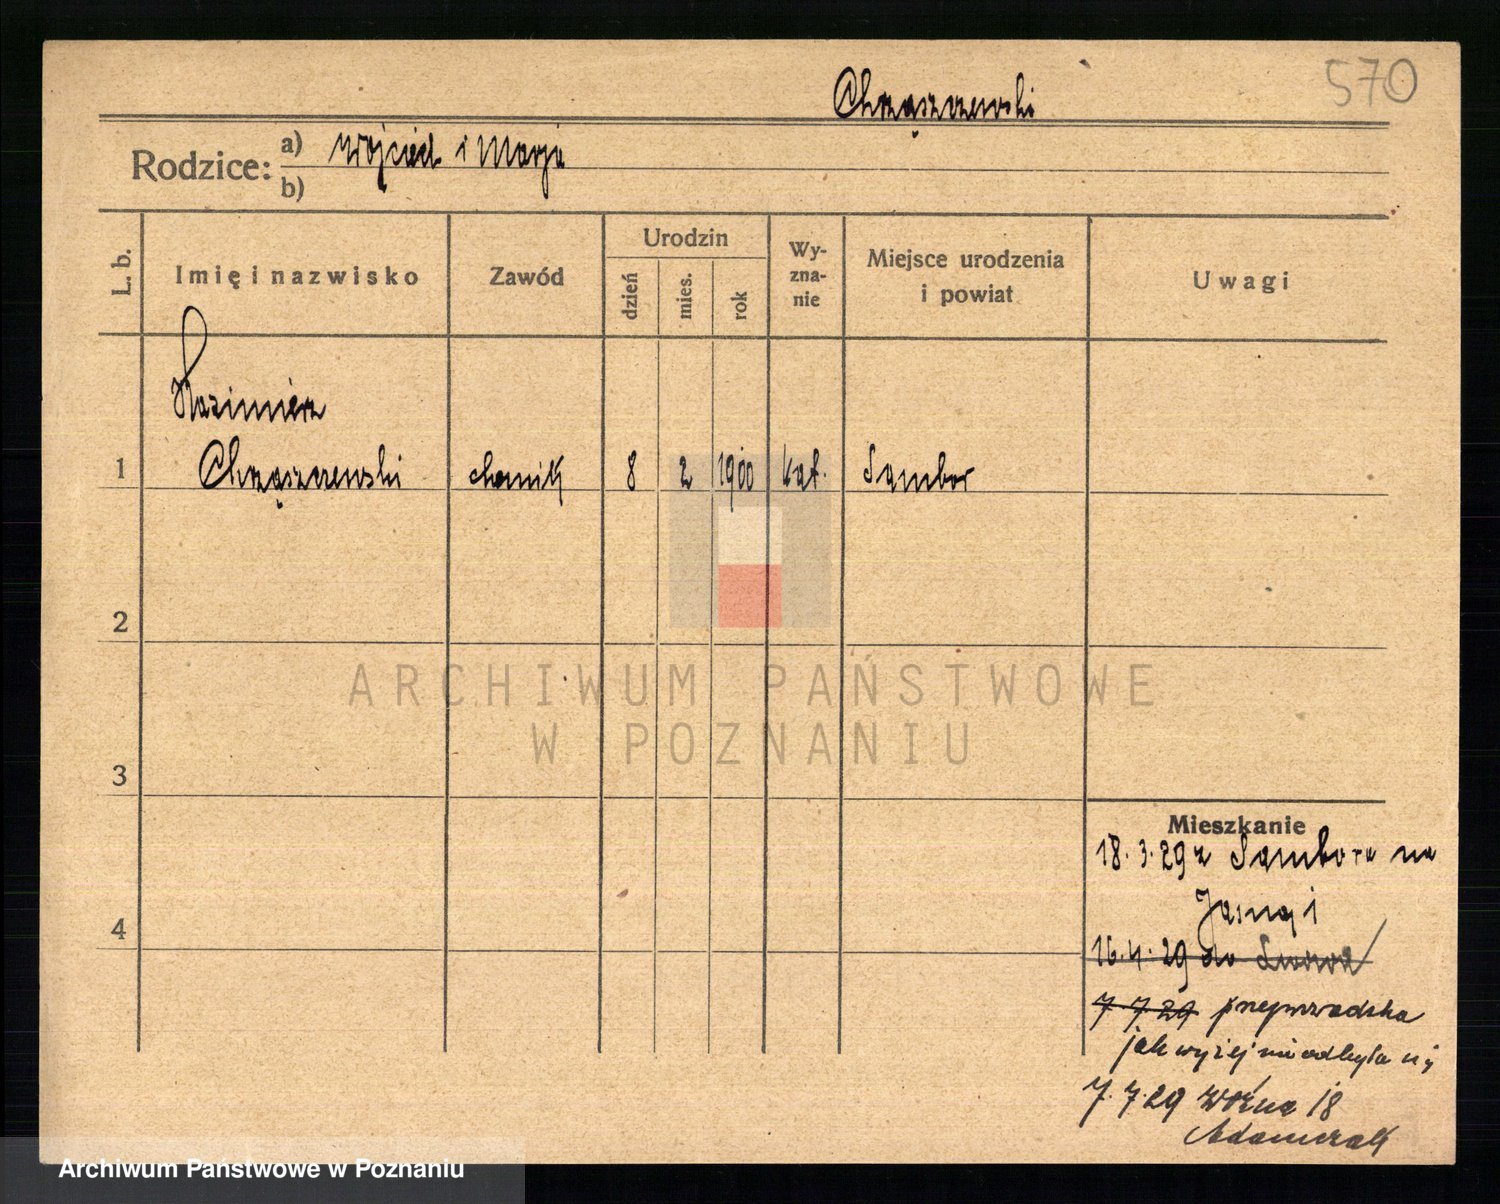 570
Chrząszczewski
Rodzice: a) Wojciech i Marja
b)
L. b.
Imię i nazwisko
Zawód
Urodzin
dzień
mies.
rok
Wy-
zna-
nie
Miejsce urodzenia
i powiat
Uwagi
Kazimierz
1 Chrząszczewski chemik 8 2 1900 kat. Sambor
2
3
4
ARCHIWUM PAŃSTWOWE
W POZNANIU
Mieszkanie
18.3.29 z Sambora na
Jasną 1
16.4.29 do Lwowa
7 7 29 przeprowadzka
jak wyżej nie odbyła się
7.7.29 Woźna 18
Adamczak
Archiwum Państwowe w Poznaniu